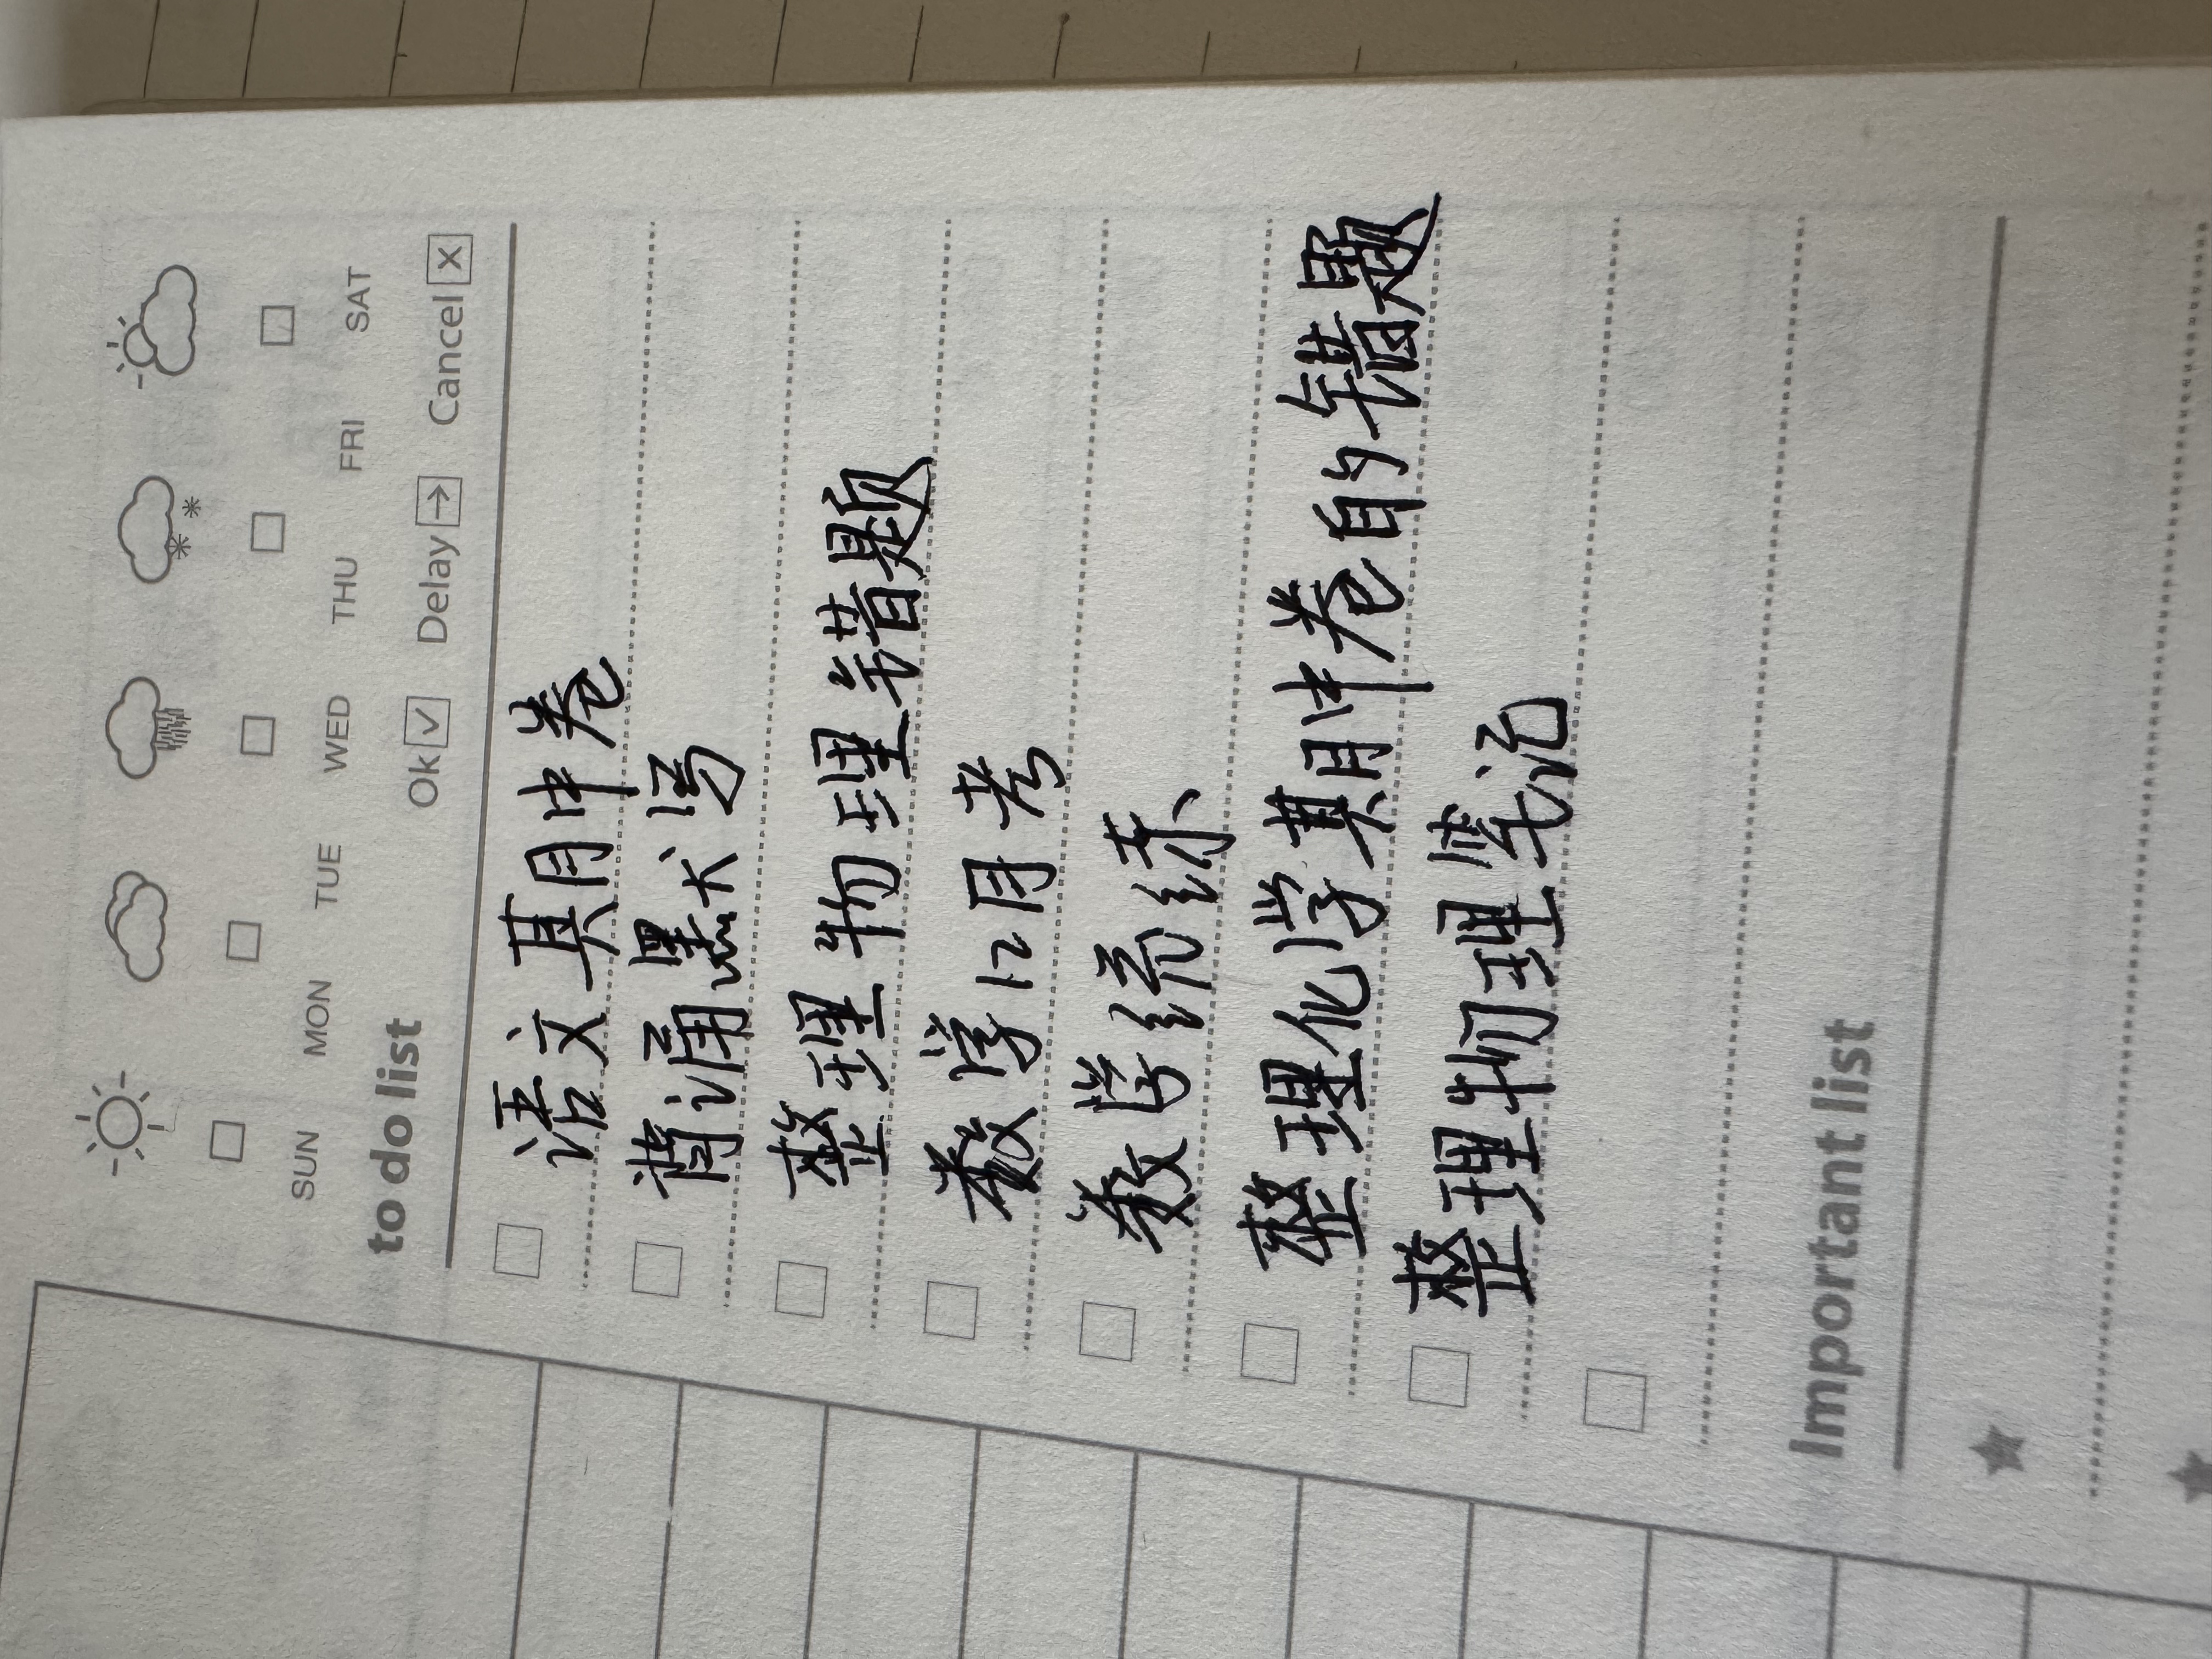 SUN MON TUE WED THU FRI SAT
to do list Ok Delay Cancel
语文期中卷
背诵默写
整理物理错题
数学12月考
数学统练
整理化学期中卷自的错题
整理物理笔记
Important list